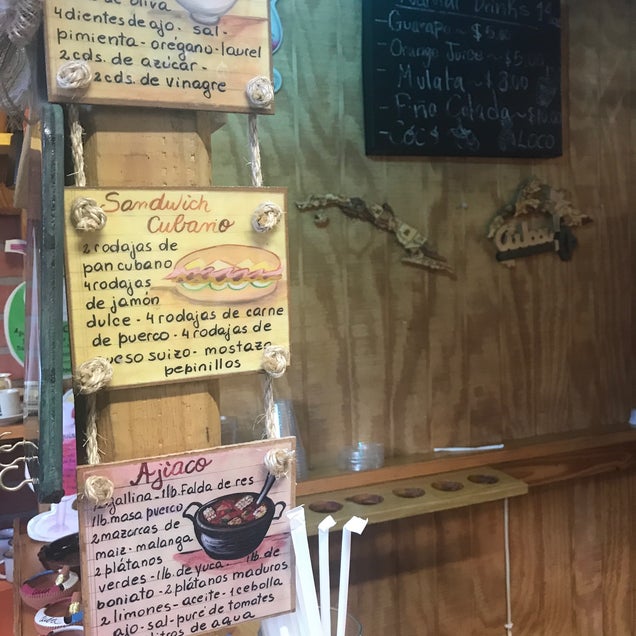 de oliva
4 dientes de ajo - sal -
pimienta - orégano - laurel
2 cds. de azúcar -
2 cds. de vinagre
Sandwich
Cubano
2 rodajas de
pan cubano
4 rodajas
de jamón
dulce - 4 rodajas de carne
de puerco - 4 rodajas de
queso suizo - mostaza
pepinillos
Ajiaco
gallina - 1lb. Falda de res
1lb. masa puerco
2 mazorcas de
maiz - malanga
2 plátanos
verdes - 1lb. de yuca - 1lb. de
boniato - 2 plátanos maduros
2 limones - aceite - 1 cebolla
ajo - sal - puré de tomates
litros de agua
Drinks
Guarapo ~ $5.00
Orange Juice ~ $5.00
Mulata ~ $
Piña Colada ~ $
LOCO
Cuba